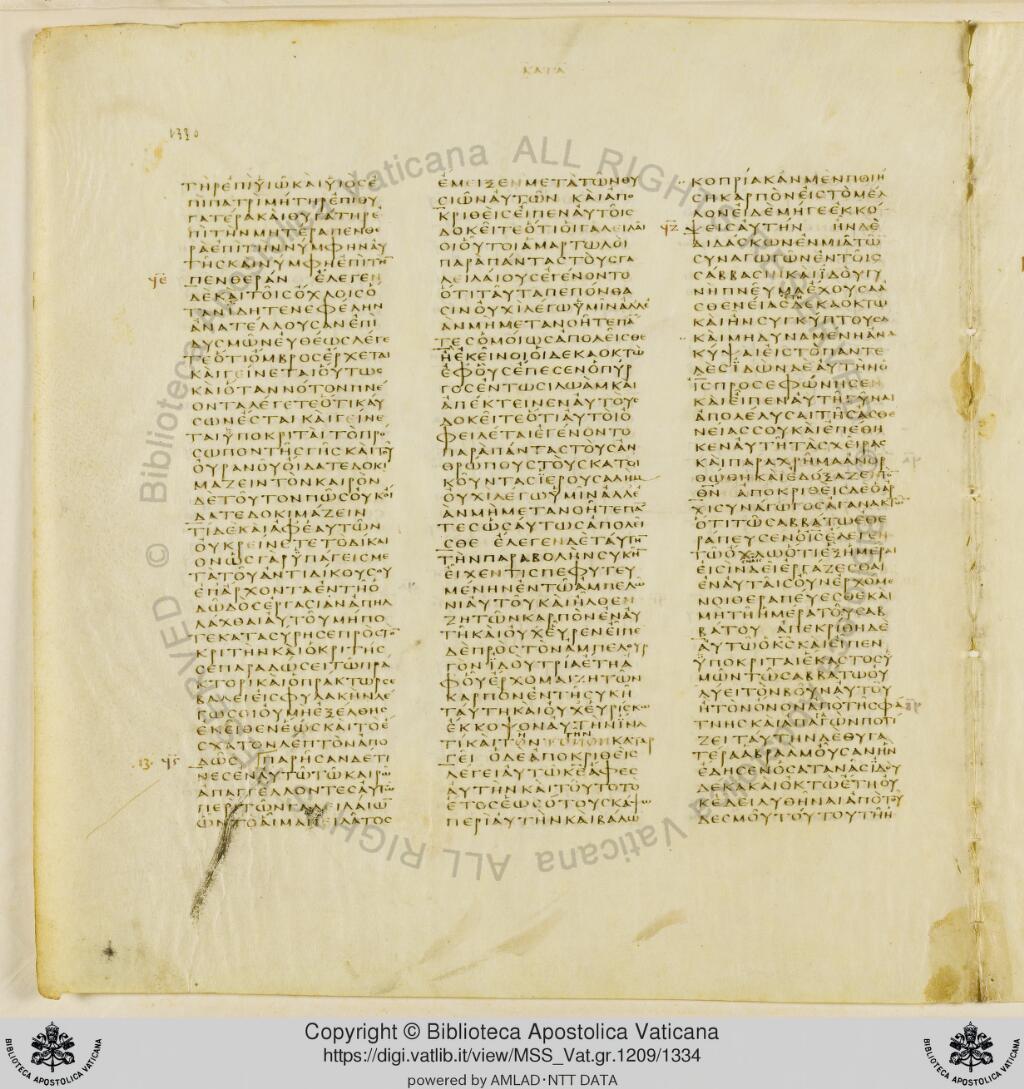 ΚΑΤΑ
1330
ΤΗΡΕΠΙΥΙΩΚΑΙΥΙΟΣΕ
ΠΙΠΑΤΡΙΜΗΤΗΡΕΠΙΘΥ
ΓΑΤΕΡΑΚΑΙΘΥΓΑΤΗΡΕ
ΠΙΤΗΝΜΗΤΕΡΑΠΕΝΘΕ
ΡΑΕΠΙΤΗΝΝΥΜΦΗΝΑΥ
ΤΗΣΚΑΙΝΥΜΦΗΕΠΙΤΗ
ΠΕΝΘΕΡΑΝ ΕΛΕΓΕΝ
ΔΕΚΑΙΤΟΙΣΟΧΛΟΙΣΟ
ΤΑΝΙΔΗΤΕΝΕΦΕΛΗΝ
ΑΝΑΤΕΛΛΟΥΣΑΝΕΠΙ
ΔΥΣΜΩΝΕΥΘΕΩΣΛΕΓΕ
ΤΕΟΤΙΟΜΒΡΟΣΕΡΧΕΤΑΙ
ΚΑΙΓΕΙΝΕΤΑΙΟΥΤΩΣ
ΚΑΙΟΤΑΝΝΟΤΟΝΠΝΕ
ΟΝΤΑΛΕΓΕΤΕΟΤΙΚΑΥ
ΣΩΝΕΣΤΑΙΚΑΙΓΕΙΝΕ
ΤΑΙΥΠΟΚΡΙΤΑΙΤΟΠΡΟ
ΣΩΠΟΝΤΗΣΓΗΣΚΑΙΤΟΥ
ΟΥΡΑΝΟΥΟΙΔΑΤΕΔΟΚΙ
ΜΑΖΕΙΝΤΟΝΚΑΙΡΟΝ
ΔΕΤΟΥΤΟΝΠΩΣΟΥΚΟΙ
ΔΑΤΕΔΟΚΙΜΑΖΕΙΝ
ΤΙΔΕΚΑΙΑΦΕΑΥΤΩΝ
ΟΥΚΡΕΙΝΕΤΕΤΟΔΙΚΑΙ
ΟΝΩΣΓΑΡΥΠΑΓΕΙΣΜΕ
ΤΑΤΟΥΑΝΤΙΔΙΚΟΥΣΟΥ
ΕΠΑΡΧΟΝΤΑΕΝΤΗΟ
ΔΩΔΟΣΕΡΓΑΣΙΑΝΑΠΗΛ
ΛΑΧΘΑΙΑΥΤΟΥΜΗΠΟ
ΤΕΚΑΤΑΣΥΡΗΣΕΠΡΟΣΤΟ
ΚΡΙΤΗΝΚΑΙΟΚΡΙΤΗΣ
ΣΕΠΑΡΑΔΩΣΕΙΤΩΠΡΑ
ΚΤΟΡΙΚΑΙΟΠΡΑΚΤΩΡΣΕ
ΒΑΛΕΙΕΙΣΦΥΛΑΚΗΝΛΕ
ΓΩΣΟΙΟΥΜΗΕΞΕΛΘΗΣ
ΕΚΕΙΘΕΝΕΩΣΚΑΙΤΟΕ
ΣΧΑΤΟΝΛΕΠΤΟΝΑΠΟ
ΔΩΣ ΠΑΡΗΣΑΝΔΕΤΙ
ΝΕΣΕΝΑΥΤΩΤΩΚΑΙΡΩ
ΑΠΑΓΓΕΛΛΟΝΤΕΣΑΥΤΩ
ΠΕΡΙΤΩΝΓΑΛΕΙΛΑΙΩ
ΩΝΤΟΑΙΜΑΠΕΙΛΑΤΟΣ
ΕΜΕΙΞΕΝΜΕΤΑΤΩΝΘΥ
ΣΙΩΝΑΥΤΩΝ ΚΑΙΑΠΟ
ΚΡΙΘΕΙΣΕΙΠΕΝΑΥΤΟΙΣ
ΔΟΚΕΙΤΕΟΤΙΟΙΓΑΛΕΙΛΑΙ
ΟΙΟΥΤΟΙΑΜΑΡΤΩΛΟΙ
ΠΑΡΑΠΑΝΤΑΣΤΟΥΣΓΑ
ΛΕΙΛΑΙΟΥΣΕΓΕΝΟΝΤΟ
ΟΤΙΤΑΥΤΑΠΕΠΟΝΘΑ
ΣΙΝΟΥΧΙΛΕΓΩΥΜΙΝΑΛΛΕ
ΑΝΜΗΜΕΤΑΝΟΗΤΕΠΑ
ΤΕΣΟΜΟΙΩΣΑΠΟΛΕΙΣΘΕ
ΗΕΚΕΙΝΟΙΟΙΔΕΚΑΟΚΤΩ
ΕΦΟΥΣΕΠΕΣΕΝΟΠΥΡ
ΓΟΣΕΝΤΩΣΙΛΩΑΜΚΑΙ
ΑΠΕΚΤΕΙΝΕΝΑΥΤΟΥΣ
ΔΟΚΕΙΤΕΟΤΙΑΥΤΟΙΟ
ΦΕΙΛΕΤΑΙΕΓΕΝΟΝΤΟ
ΠΑΡΑΠΑΝΤΑΣΤΟΥΣΑΝ
ΘΡΩΠΟΥΣΤΟΥΣΚΑΤΟΙ
ΚΟΥΝΤΑΣΙΕΡΟΥΣΑΛΗΜ
ΟΥΧΙΛΕΓΩΥΜΙΝΑΛΛΕ
ΑΝΜΗΜΕΤΑΝΟΗΤΕΠΑ
ΤΕΣΩΣΑΥΤΩΣΑΠΟΛΕΙ
ΣΘΕ ΕΛΕΓΕΝΔΕΤΑΥΤΗ
ΤΗΝΠΑΡΑΒΟΛΗΝΣΥΚΗ
ΕΙΧΕΝΤΙΣΠΕΦΥΤΕΥ
ΜΕΝΗΝΕΝΤΩΑΜΠΕΛΩ
ΝΙΑΥΤΟΥΚΑΙΗΛΘΕΝ
ΖΗΤΩΝΚΑΡΠΟΝΕΝΑΥ
ΤΗΚΑΙΟΥΧΕΥΡΕΝΕΙΠΕ
ΔΕΠΡΟΣΤΟΝΑΜΠΕΛΟΥΡ
ΓΟΝΙΔΟΥΤΡΙΑΕΤΗΑ
ΦΟΥΕΡΧΟΜΑΙΖΗΤΩΝ
ΚΑΡΠΟΝΕΝΤΗΣΥΚΗ
ΤΑΥΤΗΚΑΙΟΥΧΕΥΡΙΣΚΩ
ΕΚΚΟΨΟΝΑΥΤΗΝΙΝΑ
ΤΙΚΑΙΤΟΝΤΟΠΟΝΚΑΤΑΡ
ΓΕΙ ΟΔΕΑΠΟΚΡΙΘΕΙΣ
ΛΕΓΕΙΑΥΤΩΚΕΑΦΕΣ
ΑΥΤΗΝΚΑΙΤΟΥΤΟΤΟ
ΕΤΟΣΕΩΣΟΤΟΥΣΚΑΨΩ
ΠΕΡΙΑΥΤΗΝΚΑΙΒΑΛΩ
ΚΟΠΡΙΑΚΑΝΜΕΝΠΟΙΗ
ΣΗΚΑΡΠΟΝΕΙΣΤΟΜΕΛ
ΛΟΝΕΙΔΕΜΗΓΕΕΚΚΟ
ΨΕΙΣΑΥΤΗΝ ΗΝΔΕ
ΔΙΔΑΣΚΩΝΕΝΜΙΑΤΩ
ΣΥΝΑΓΩΓΩΝΕΝΤΟΙΣ
ΣΑΒΒΑΣΙΝΚΑΙΙΔΟΥΓΥ
ΝΗΠΝΕΥΜΑΕΧΟΥΣΑΑ
ΣΘΕΝΕΙΑΣΔΕΚΑΟΚΤΩ
ΚΑΙΗΝΣΥΓΚΥΠΤΟΥΣΑ
ΚΑΙΜΗΔΥΝΑΜΕΝΗΑΝΑ
ΚΥΨΑΙΕΙΣΤΟΠΑΝΤΕ
ΛΕΣΙΔΩΝΔΕΑΥΤΗΝΟ
ΙΣΠΡΟΣΕΦΩΝΗΣΕΝ
ΚΑΙΕΙΠΕΝΑΥΤΗΓΥΝΑΙ
ΑΠΟΛΕΛΥΣΑΙΤΗΣΑΣΘΕ
ΝΕΙΑΣΣΟΥΚΑΙΕΠΕΘΗ
ΚΕΝΑΥΤΗΤΑΣΧΕΙΡΑΣ
ΚΑΙΠΑΡΑΧΡΗΜΑΑΝΟΡ
ΘΩΘΗΚΑΙΕΔΟΞΑΖΕΤΟ
ΘΝ ΑΠΟΚΡΙΘΕΙΣΔΕΟΑΡ
ΧΙΣΥΝΑΓΩΓΟΣΑΓΑΝΑΚΤΩ
ΟΤΙΤΩΣΑΒΒΑΤΩΕΘΕ
ΡΑΠΕΥΣΕΝΟΙΣΕΛΕΓΕΝ
ΤΩΟΧΛΩΟΤΙΕΞΗΜΕΡΑΙ
ΕΙΣΙΝΑΙΣΔΕΙΕΡΓΑΖΕΣΘΑΙ
ΕΝΑΥΤΑΙΣΟΥΝΕΡΧΟΜΕ
ΝΟΙΘΕΡΑΠΕΥΕΣΘΕΚΑΙ
ΜΗΤΗΗΜΕΡΑΤΟΥΣΑΒ
ΒΑΤΟΥ ΑΠΕΚΡΙΘΗΔΕ
ΑΥΤΩΟΚΣΚΑΙΕΙΠΕΝ
ΥΠΟΚΡΙΤΑΙΕΚΑΣΤΟΣΥ
ΜΩΝΤΩΣΑΒΒΑΤΩΟΥ
ΛΥΕΙΤΟΝΒΟΥΝΑΥΤΟΥ
ΗΤΟΝΟΝΟΝΑΠΟΤΗΣΦΑ
ΤΝΗΣΚΑΙΑΠΑΓΩΝΠΟΤΙ
ΖΕΙΤΑΥΤΗΝΔΕΘΥΓΑ
ΤΕΡΑΑΒΡΑΑΜΟΥΣΑΝΗΝ
ΕΔΗΣΕΝΟΣΑΤΑΝΑΣΙΔΟΥ
ΔΕΚΑΚΑΙΟΚΤΩΕΤΗΟΥ
ΚΕΔΕΙΛΥΘΗΝΑΙΑΠΟΤΟΥ
ΔΕΣΜΟΥΤΟΥΤΟΥΤΗΗ
© Biblioteca Apostolica Vaticana ALL RIGHTS RESERVED
Copyright © Biblioteca Apostolica Vaticana
https://digi.vatlib.it/view/MSS_Vat.gr.1209/1334
powered by AMLAD·NTT DATA
BIBLIOTECA APOSTOLICA VATICANA
BIBLIOTECA APOSTOLICA VATICANA